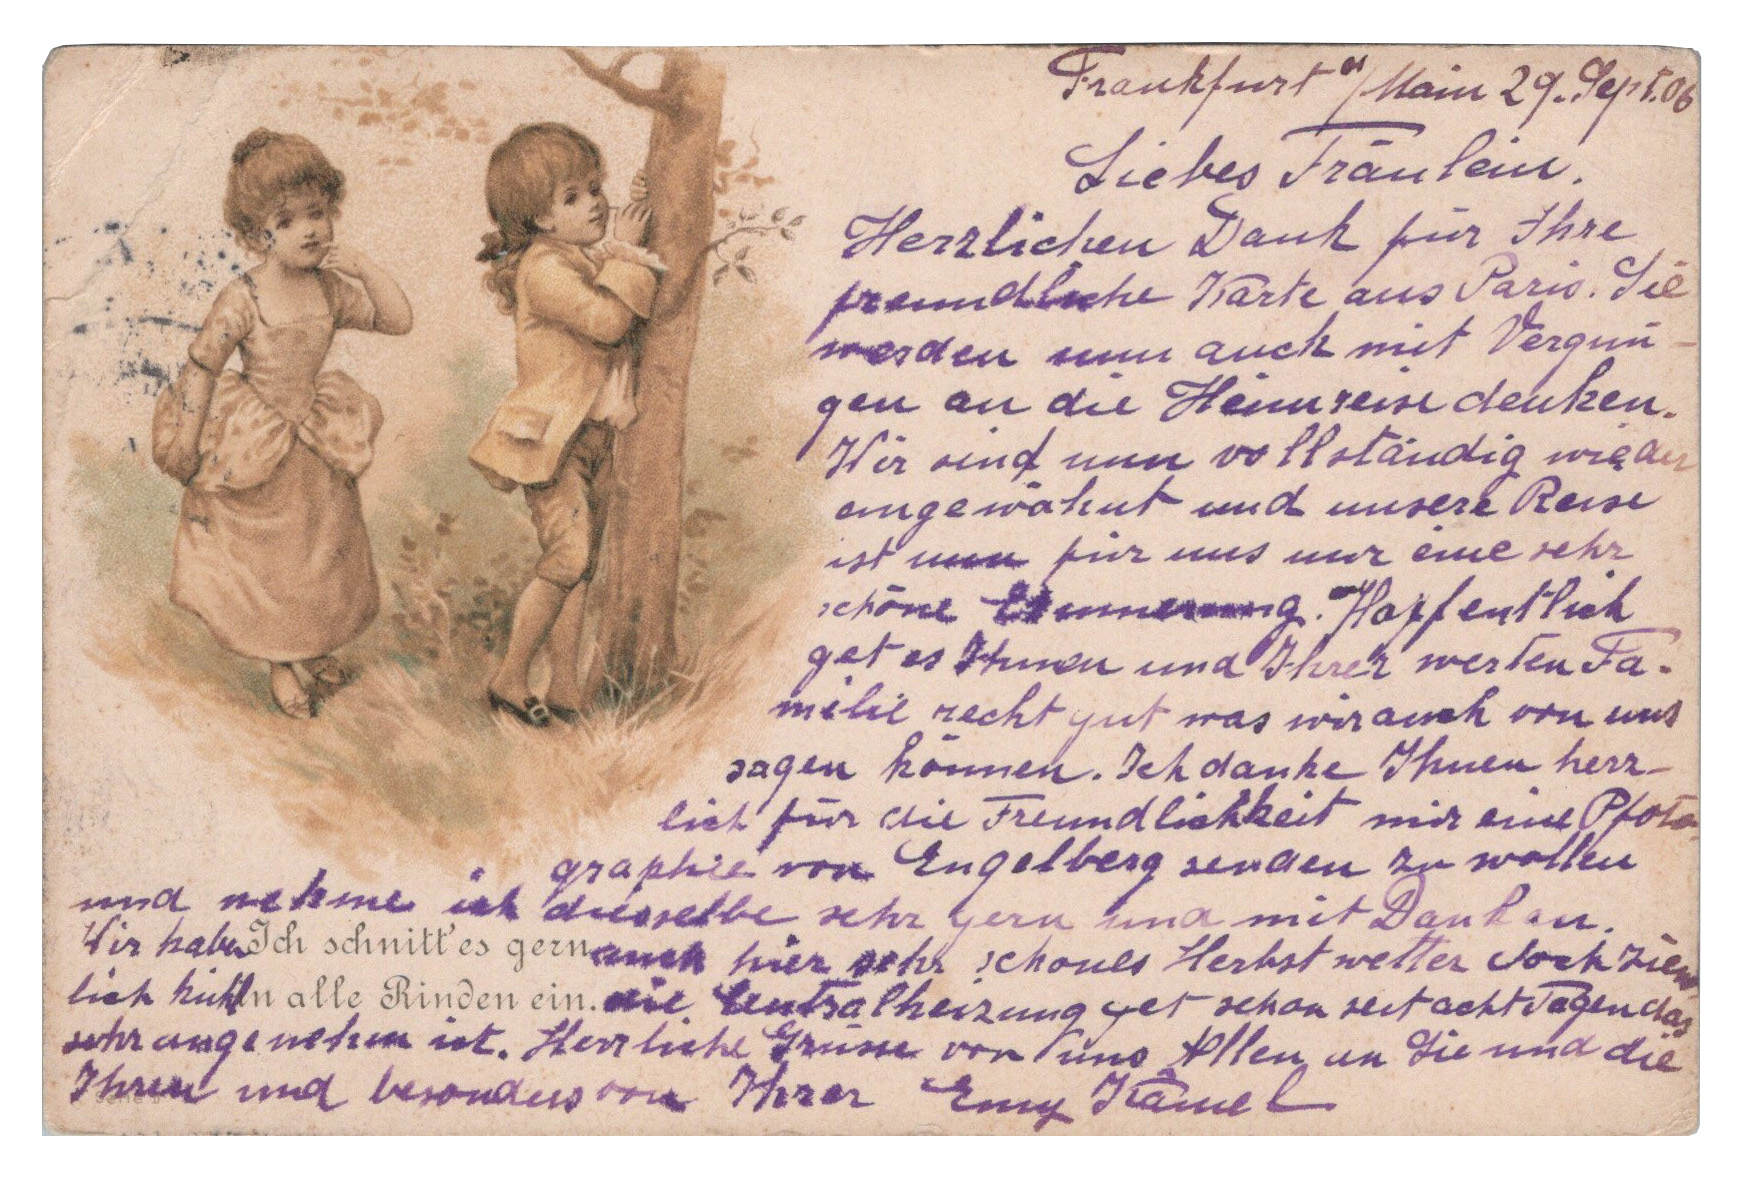 Frankfurt a/Main 29. Sept. 06
Liebes Fräulein.
Herzlichen Dank für Ihre
freundliche Karte aus Paris. Sie
werden nun auch mit Vergnü-
gen an die Heimreise denken.
Wir sind nun vollständig wieder
eingewöhnt und unsere Reise
ist nun für uns nur eine sehr
schöne Erinnerung. Hoffentlich
get es Ihnen und Ihrer werten Fa-
milie recht gut was wir auch von uns
sagen können. Ich danke Ihnen herz-
lich für die Freundlichkeit mir eine Pfoto-
graphie von Engelberg senden zu wollen
und nehme ich dieselbe sehr gern und mit Dank an.
Wir haben auch hier sehr schönes Herbstwetter doch ziem-
Ich schnitt' es gern
lich kühl die Centralheizung get schon seit acht Tagen das
In alle Rinden ein.
sehr angenehm ist. Herzliche Grüsse von uns Allen an Sie und die
Ihren und besonders von Ihrer Emy